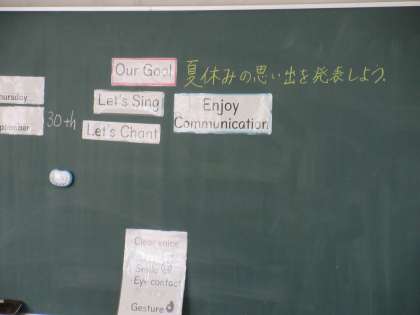 Our Goal 夏休みの思い出を発表しよう.
Let's Sing
Enjoy
Communication
Thursday
30th
Let's Chant
Clear voice
Smile
Eye contact
Gesture